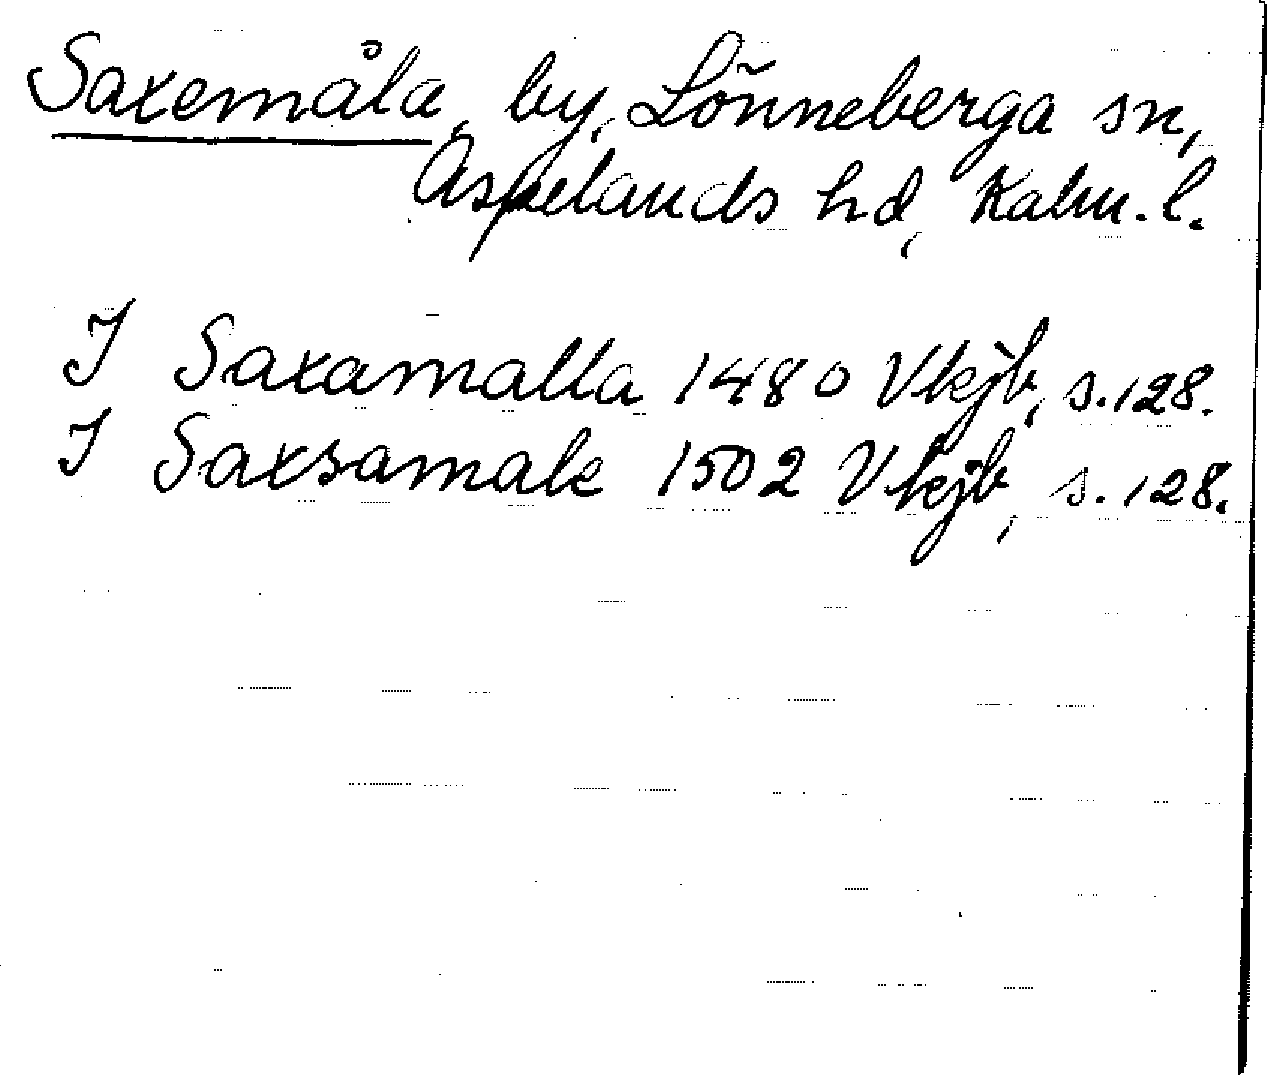 Saxemåla, by, Lönneberga sn,
Aspelands hd, Kalm. l.
I Saxamalla 1480 Vkjb, s. 128.
I Saxsamale 1502 Vkjb, s. 128.